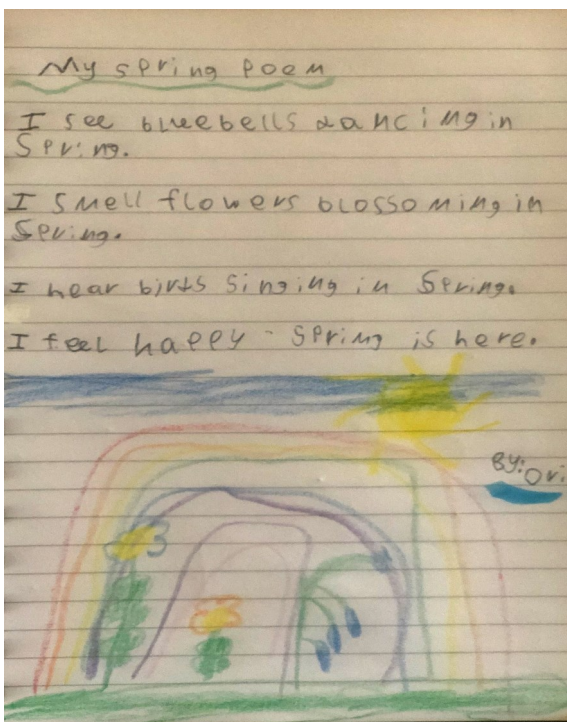 My spring poem
I see bluebells dancing in
Spring.
I smell flowers blossoming in
Spring.
I hear birds singing in Spring.
I feel happy - spring is here.
By: Ori